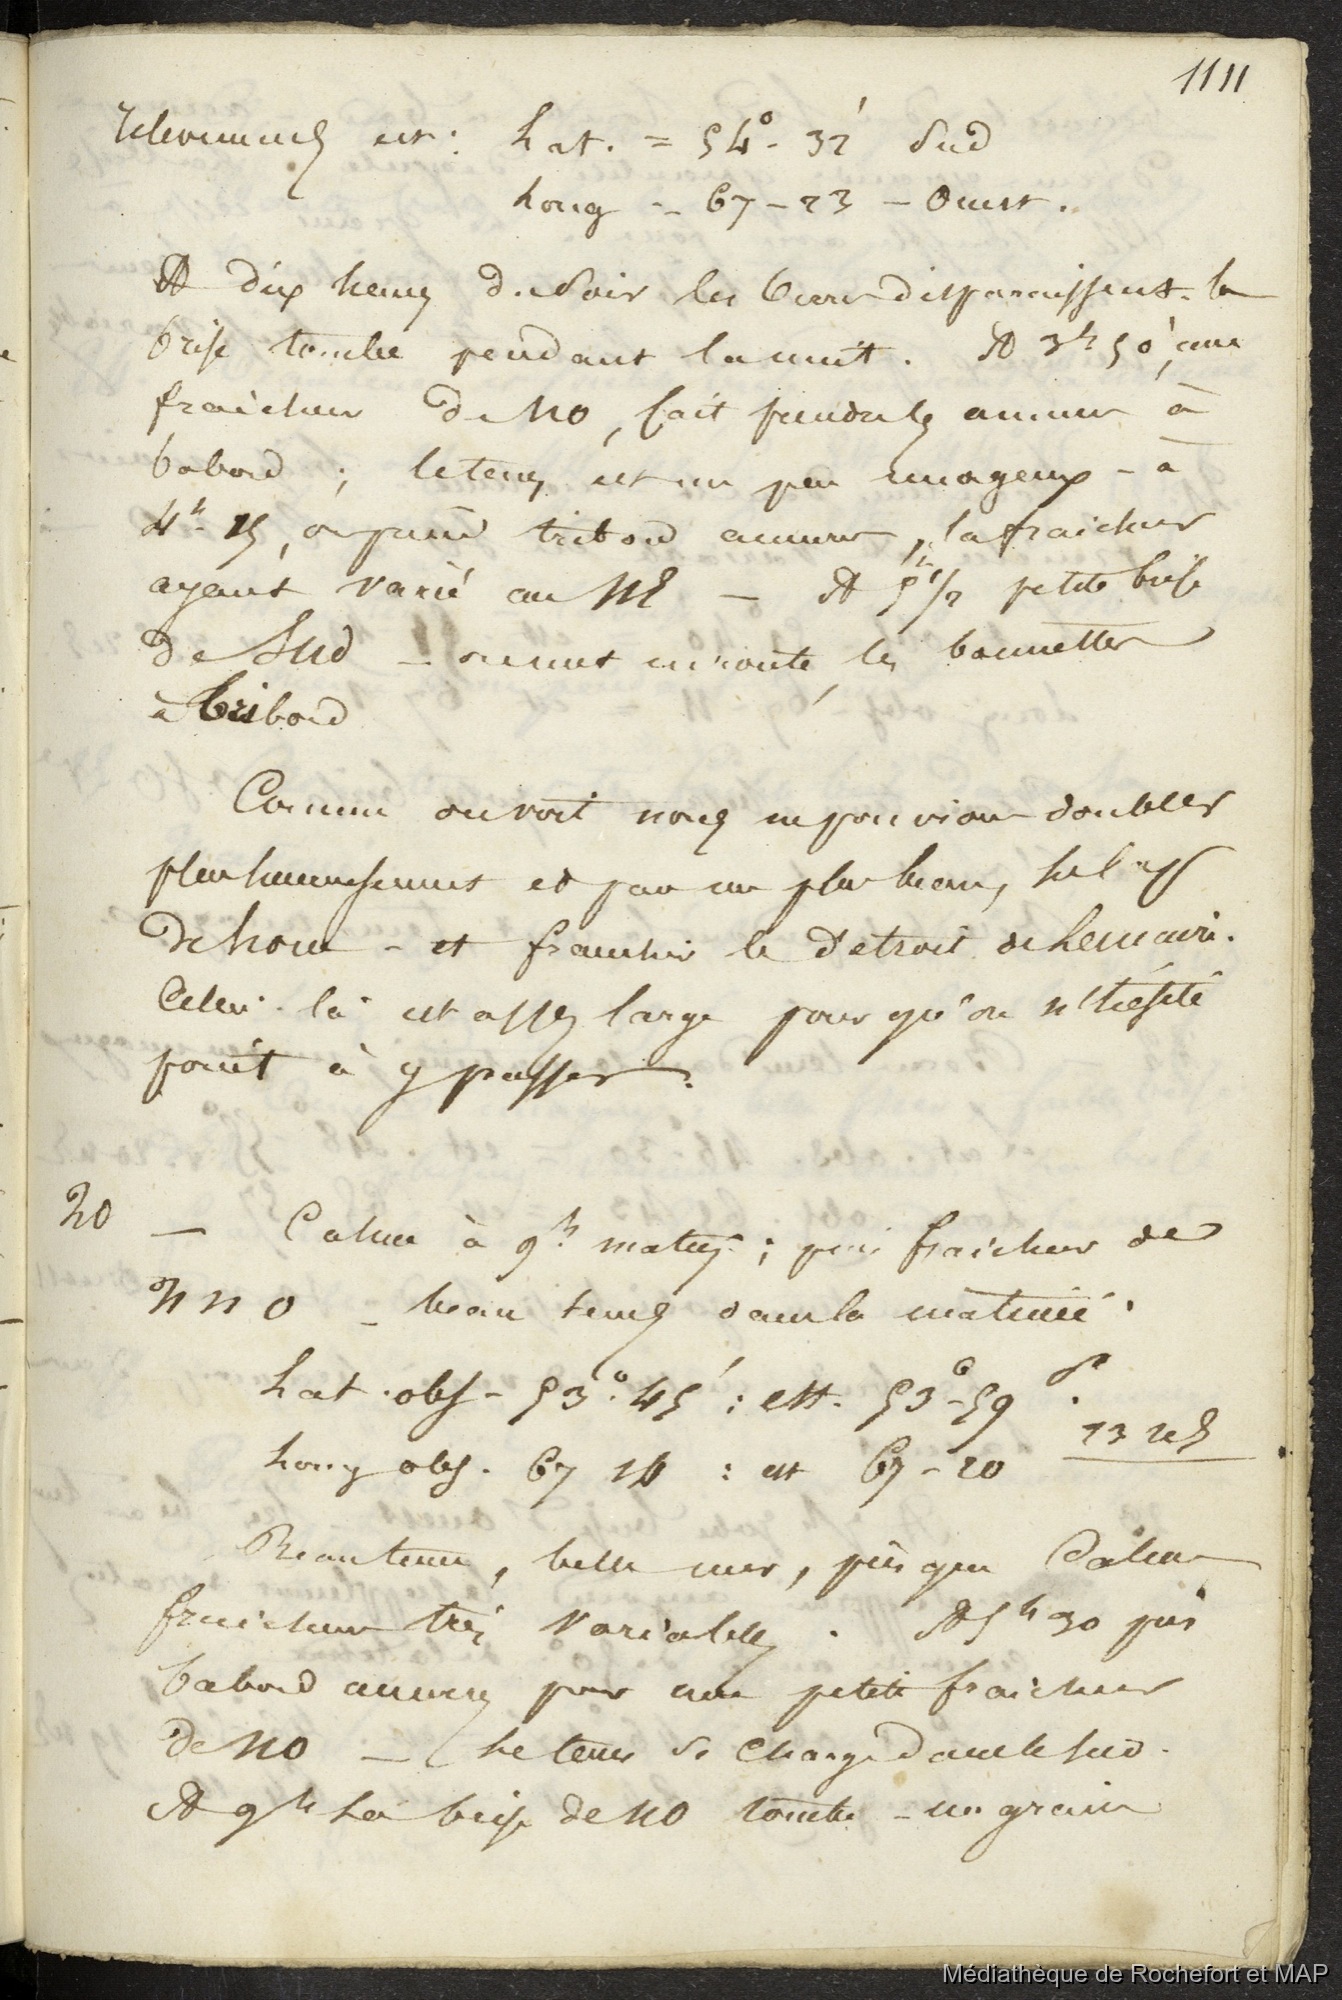 1111
relevements est : Lat. = 54° - 32' Sud
Long - 67 - 23 - Ouest.
A dix heures du soir les terres disparaissent. la
brise tombe pendant la nuit. A 3h 50', une
fraicheur de NO, fait prendre les amures à
babord ; le tems est un peu nuageux - à
4h 15, on prend tribord amures, la fraicheur
ayant varié au NE - A 5h 1/2 petite brise
de Sud - on met en route, les bonnettes
à tribord
Comme on voit nous ne pouvions doubler
plus heureusement et par un plus beau tems, le cap
de horn - et franchir le détroit de Lemaire.
Celui-là est assez large pour qu'on n'hésite
point à y passer.
20 - Calme à 9h matin ; puis fraicheur de
NNO - beau tems dans la matinée.
Lat. obs - 53° 45' : est. 53° - 59 S.
Long obs. 67 14 : est 67 - 20
Beau tems, belle mer, presque calme
fraicheurs très variables. A 5h 30 pris
babord amures pour une petite fraicheur
de NO - Le tems se charge dans le sud.
A 9h La brise de NO tombe - un grain
Médiathèque de Rochefort et MAP